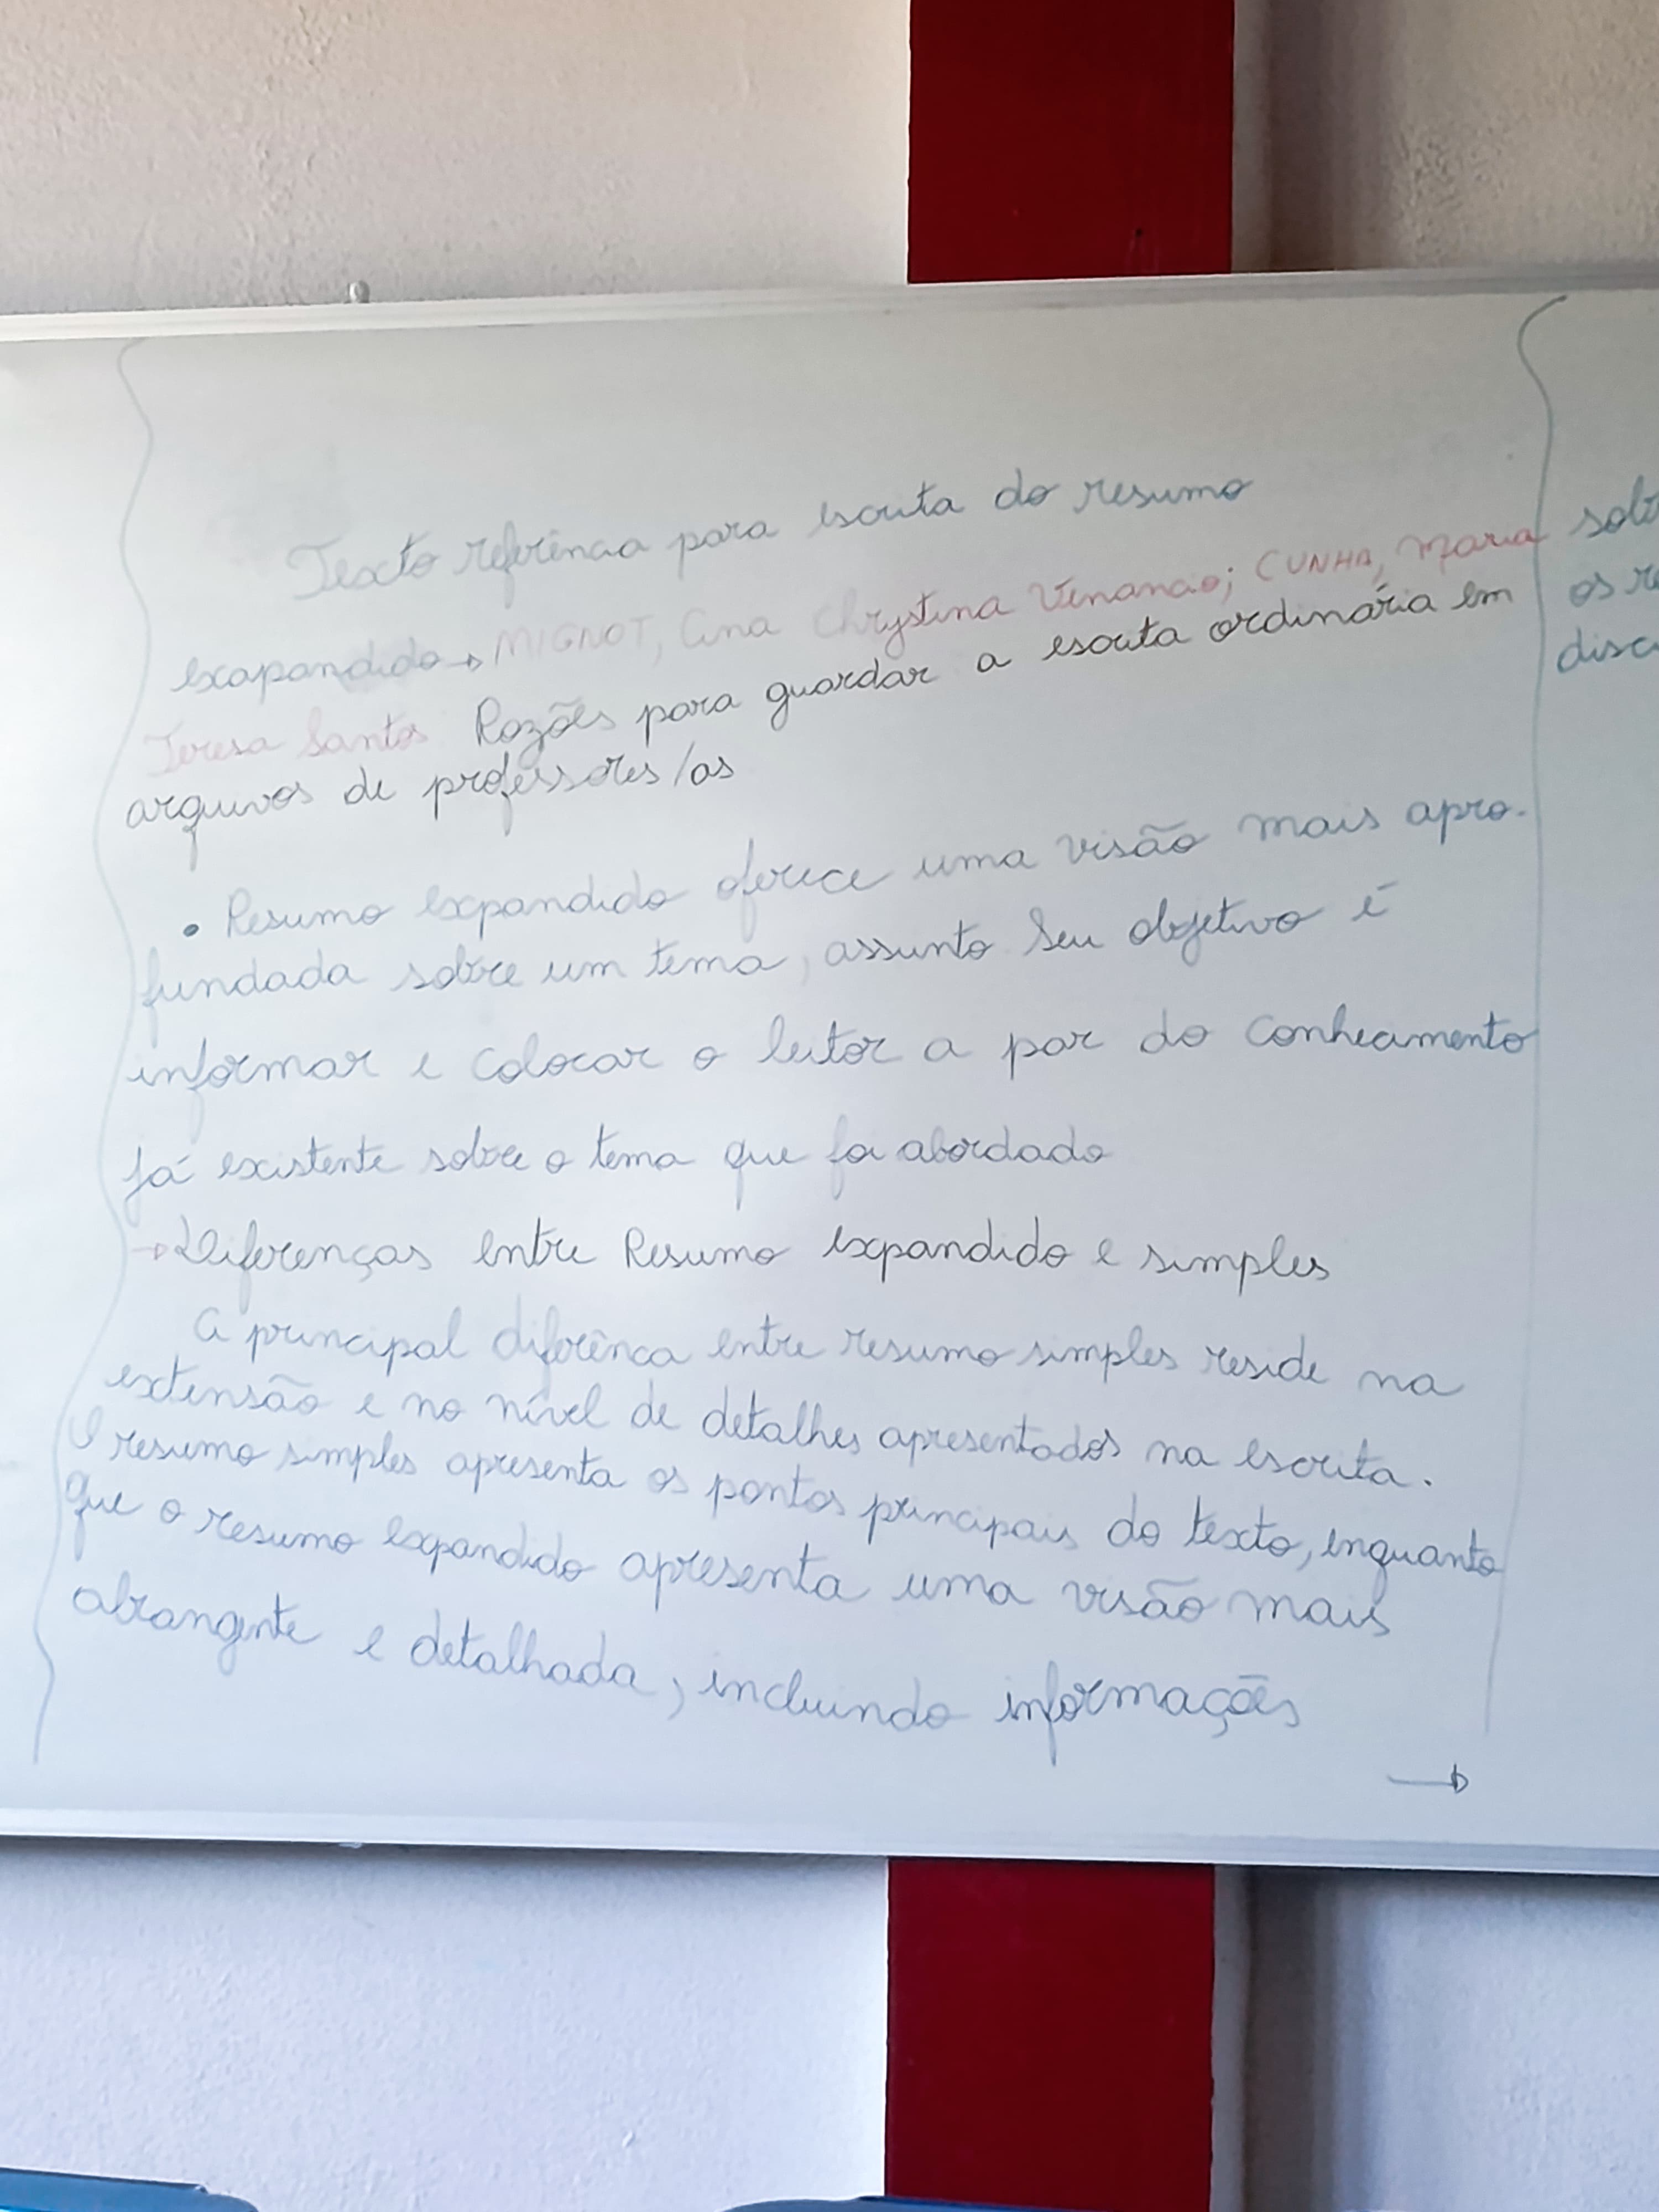 Texto referência para escrita do resumo
exapandido → MIGNOT, Ana Chrystina Venancio; CUNHA, Maria
Teresa Santos Razões para guardar a escrita ordinária em
arquivos de professores/as
• Resumo expandido oferece uma visão mais apro-
fundada sobre um tema, assunto Seu objetivo é
informar e colocar o leitor a par do conhecimento
já existente sobre o tema que foi abordado
→ Diferenças entre Resumo expandido e simples
A principal diferênca entre resumo simples reside na
extensão e no nível de detalhes apresentados na escrita.
O resumo simples apresenta os pontos principais do texto, enquanto
que o resumo expandido apresenta uma visão mais
abrangente e detalhada, incluindo informações
→
os